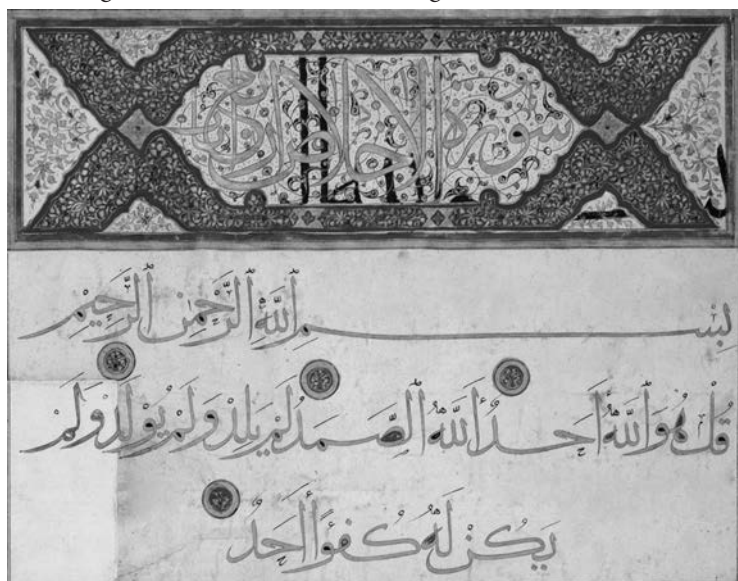 سُورَةُ الاخلاص اربع
بِسْمِ ٱللَّهِ ٱلرَّحْمٰنِ ٱلرَّحِيمِ
قُلْ هُوَ ٱللَّهُ أَحَدٌ ٱللَّهُ ٱلصَّمَدُ لَمْ يَلِدْ وَلَمْ يُولَدْ وَلَمْ
يَكُنْ لَهُ كُفُؤًا أَحَدٌ